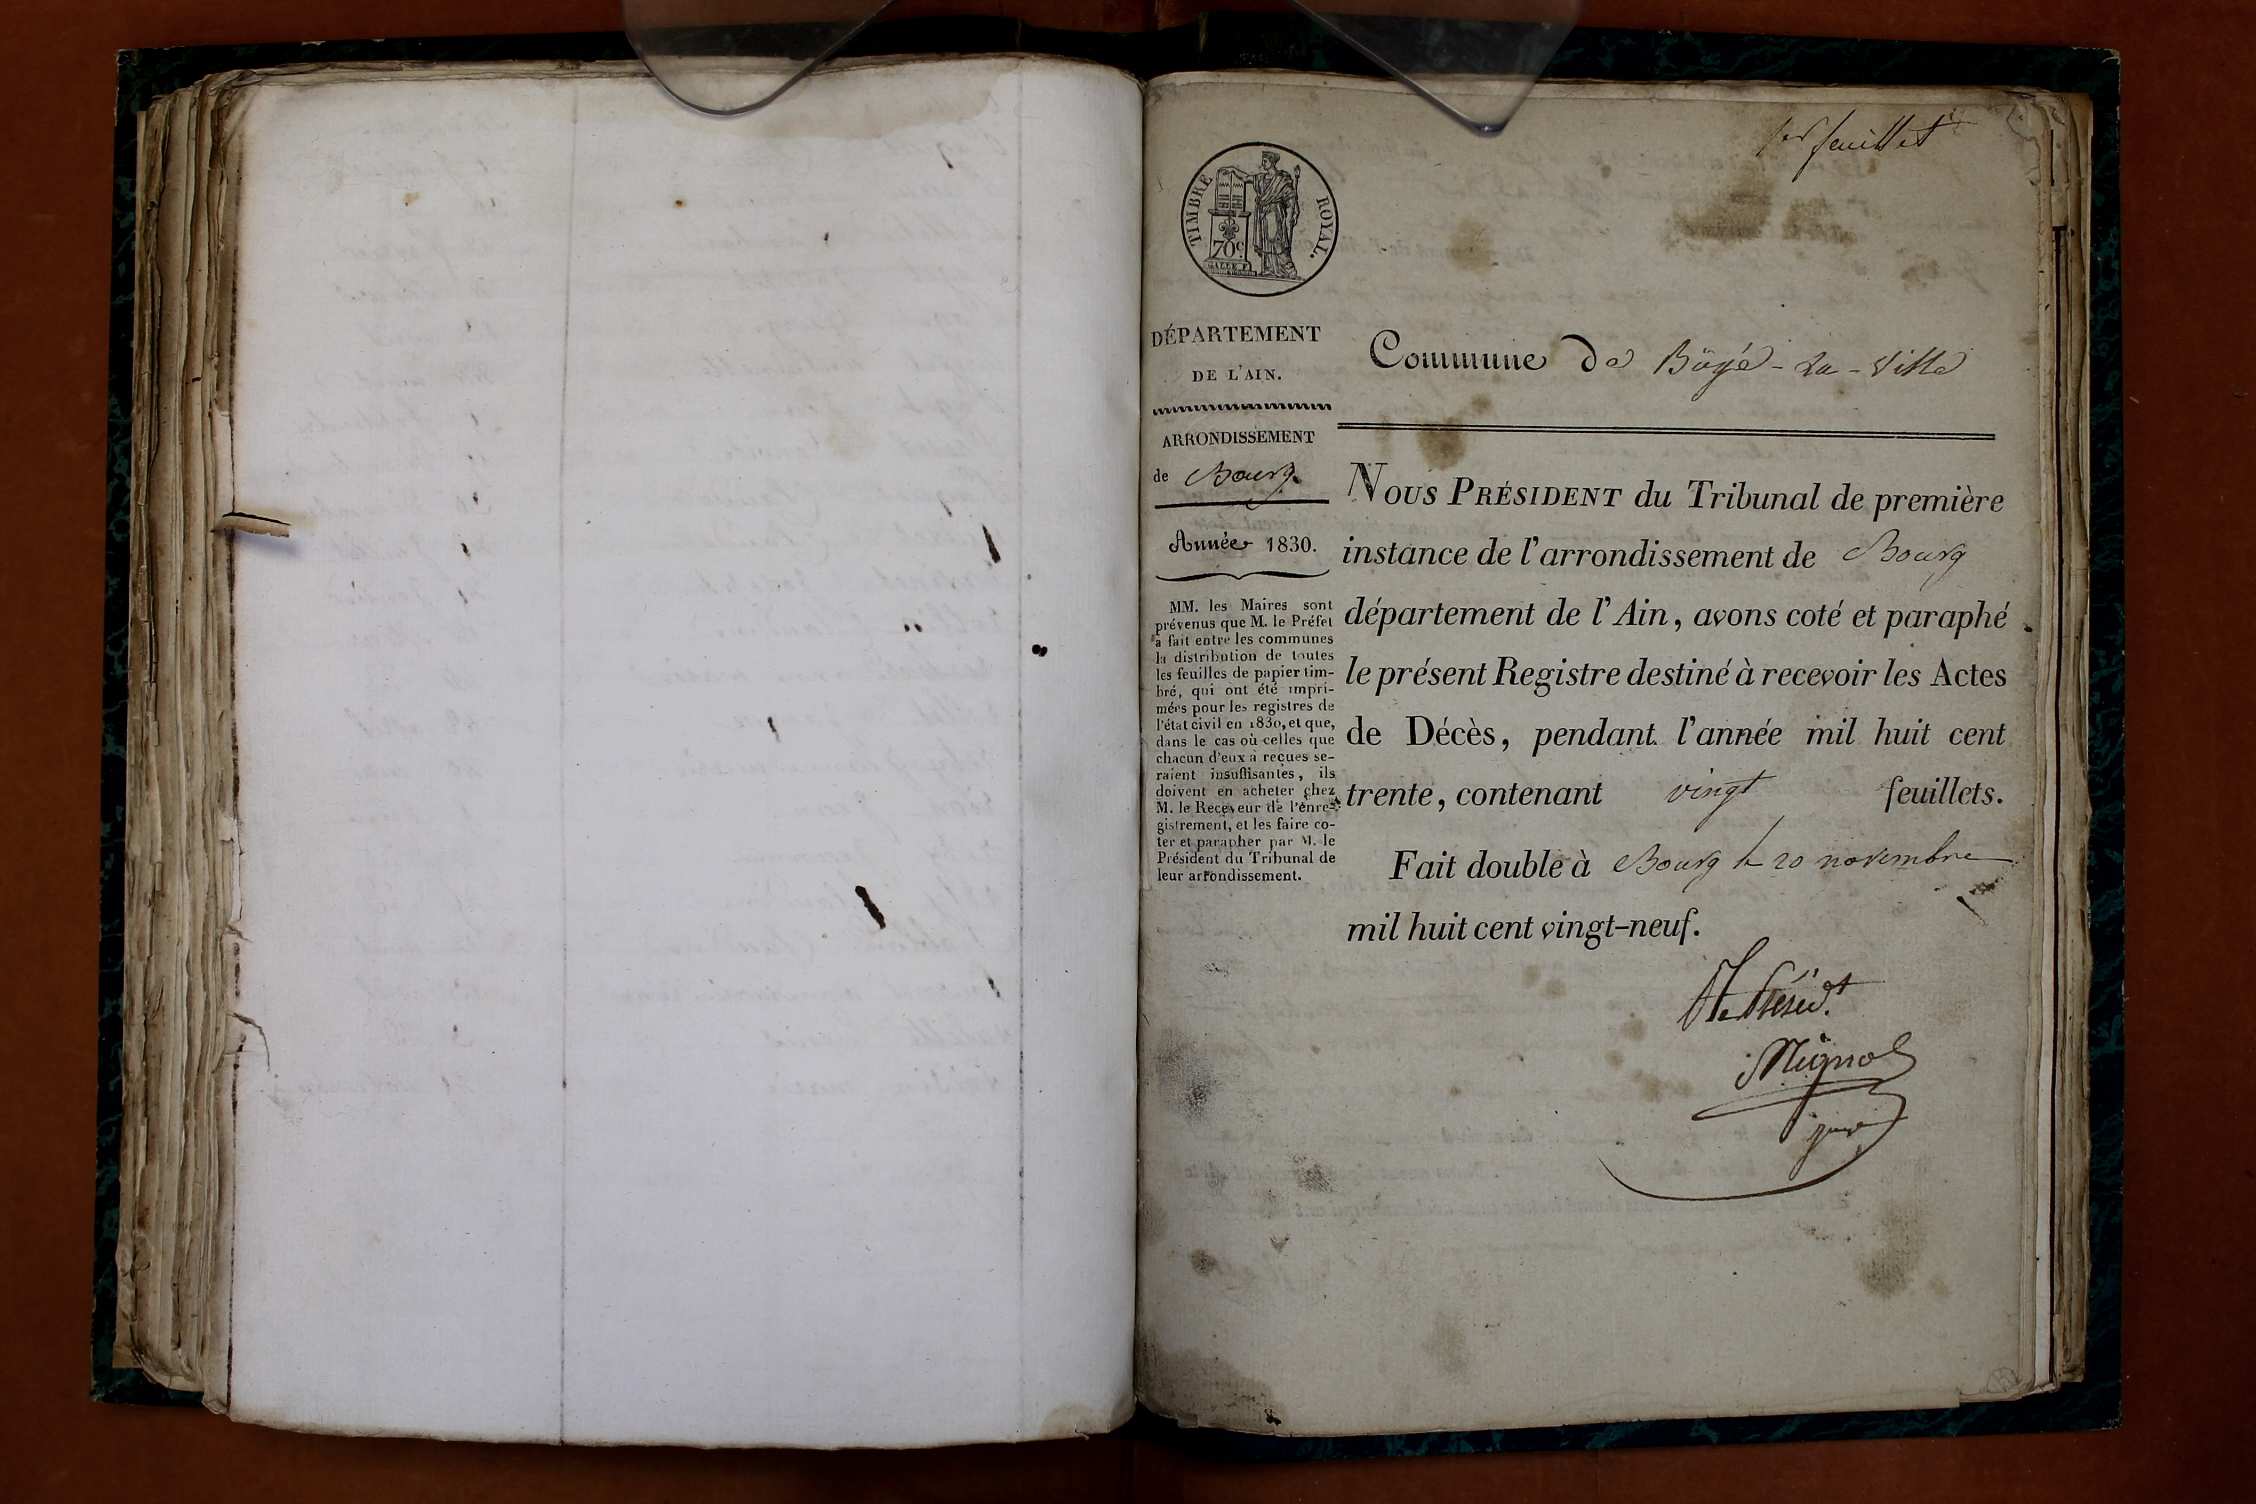 1er feuillet
TIMBRE ROYAL.
70c
DÉPARTEMENT
DE L'AIN.
ARRONDISSEMENT
de Bourg.
Année 1830.
MM. les Maires sont
prévenus que M. le Préfet
a fait entre les communes
la distribution de toutes
les feuilles de papier tim-
bré, qui ont été impri-
mées pour les registres de
l'état civil en 1830, et que,
dans le cas où celles que
chacun d'eux a reçues se-
raient insuffisantes, ils
doivent en acheter chez
M. le Receveur de l'enre-
gistrement, et les faire co-
ter et parapher par M. le
Président du Tribunal de
leur arrondissement.
Commune de Bâgé-La-Ville
NOUS PRÉSIDENT du Tribunal de première
instance de l'arrondissement de Bourg
département de l'Ain, avons coté et paraphé
le présent Registre destiné à recevoir les Actes
de Décès, pendant l'année mil huit cent
trente, contenant vingt feuillets.
Fait double à Bourg le 20 novembre
mil huit cent vingt-neuf.
Le Présidt.